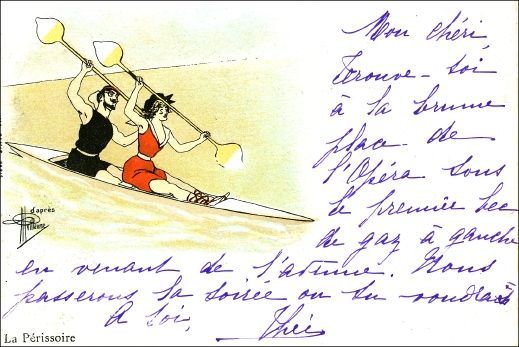 Mon chéri
Trouve-toi
à la brune
place de
l'Opéra sous
le premier bec
de gaz à gauche
en venant de l'avenue. Nous
passerons la soirée où tu voudras
A toi,
d'après
La Périssoire